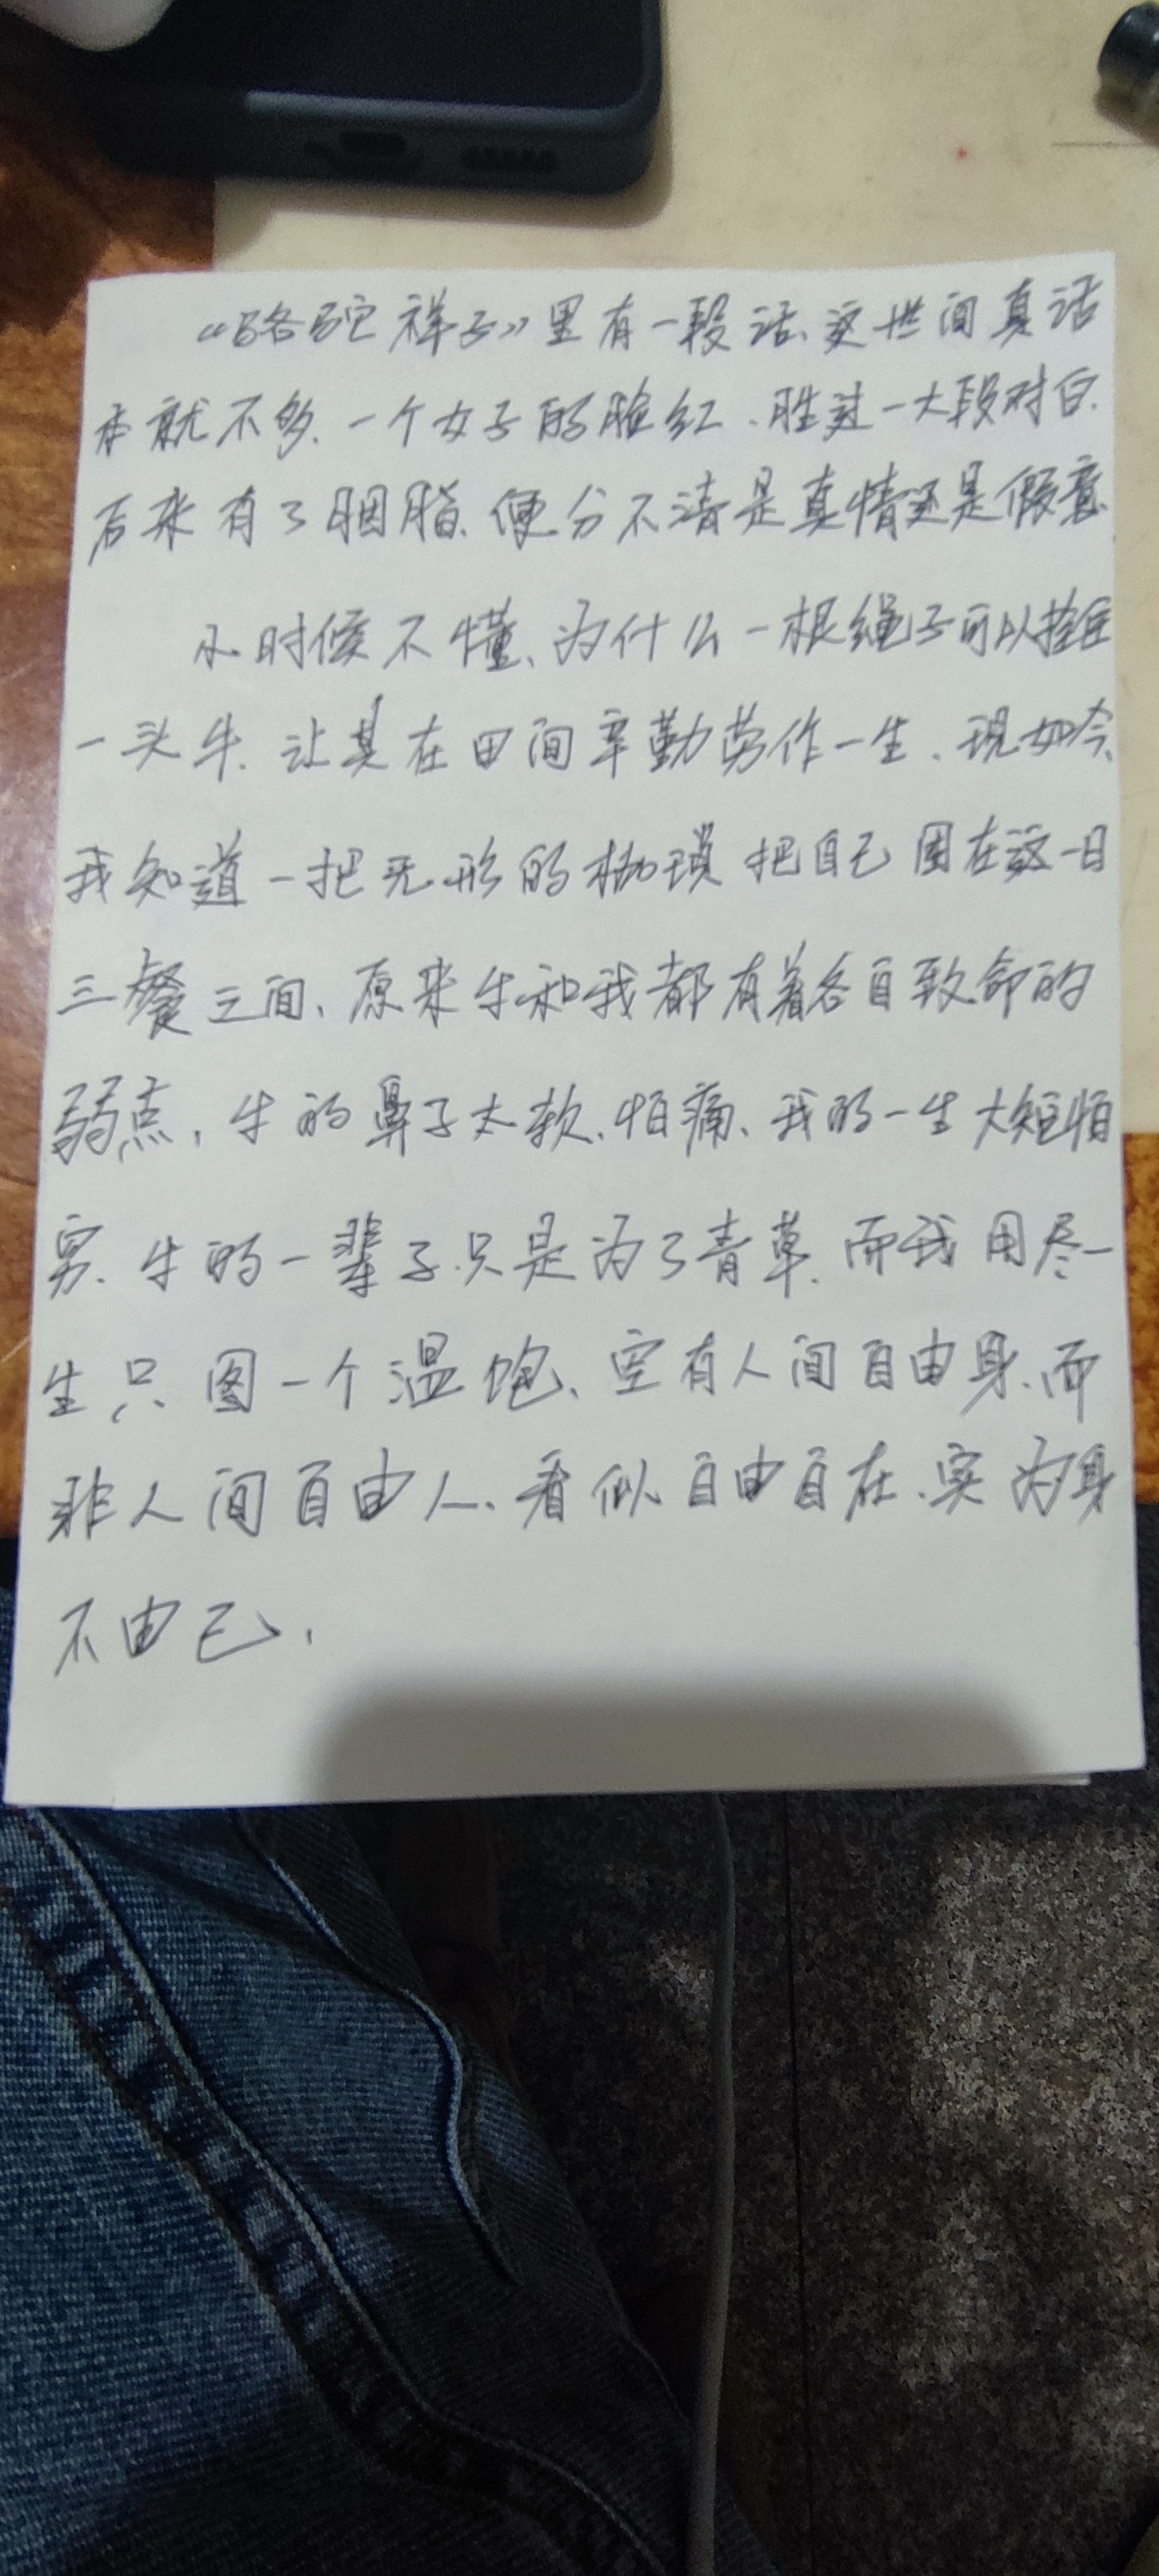 “骆驼祥子”里有一段话、这世间真话
本就不多、一个女子的脸红、胜过一大段对白.
后来有了胭脂、便分不清是真情还是假意.
小时候不懂、为什么一根绳子可以拴住
一头牛、让其在田间辛勤劳作一生、现如今、
我知道一把无形的枷锁把自己困在这一日
三餐之间、原来牛和我都有着各自致命的
弱点，牛的鼻子太软、怕痛、我的一生太短怕
穷、牛的一辈子只是为了青草、而我用尽一
生只图一个温饱、空有人间自由身、而
非人间自由人、看似自由自在、实为身
不由己，